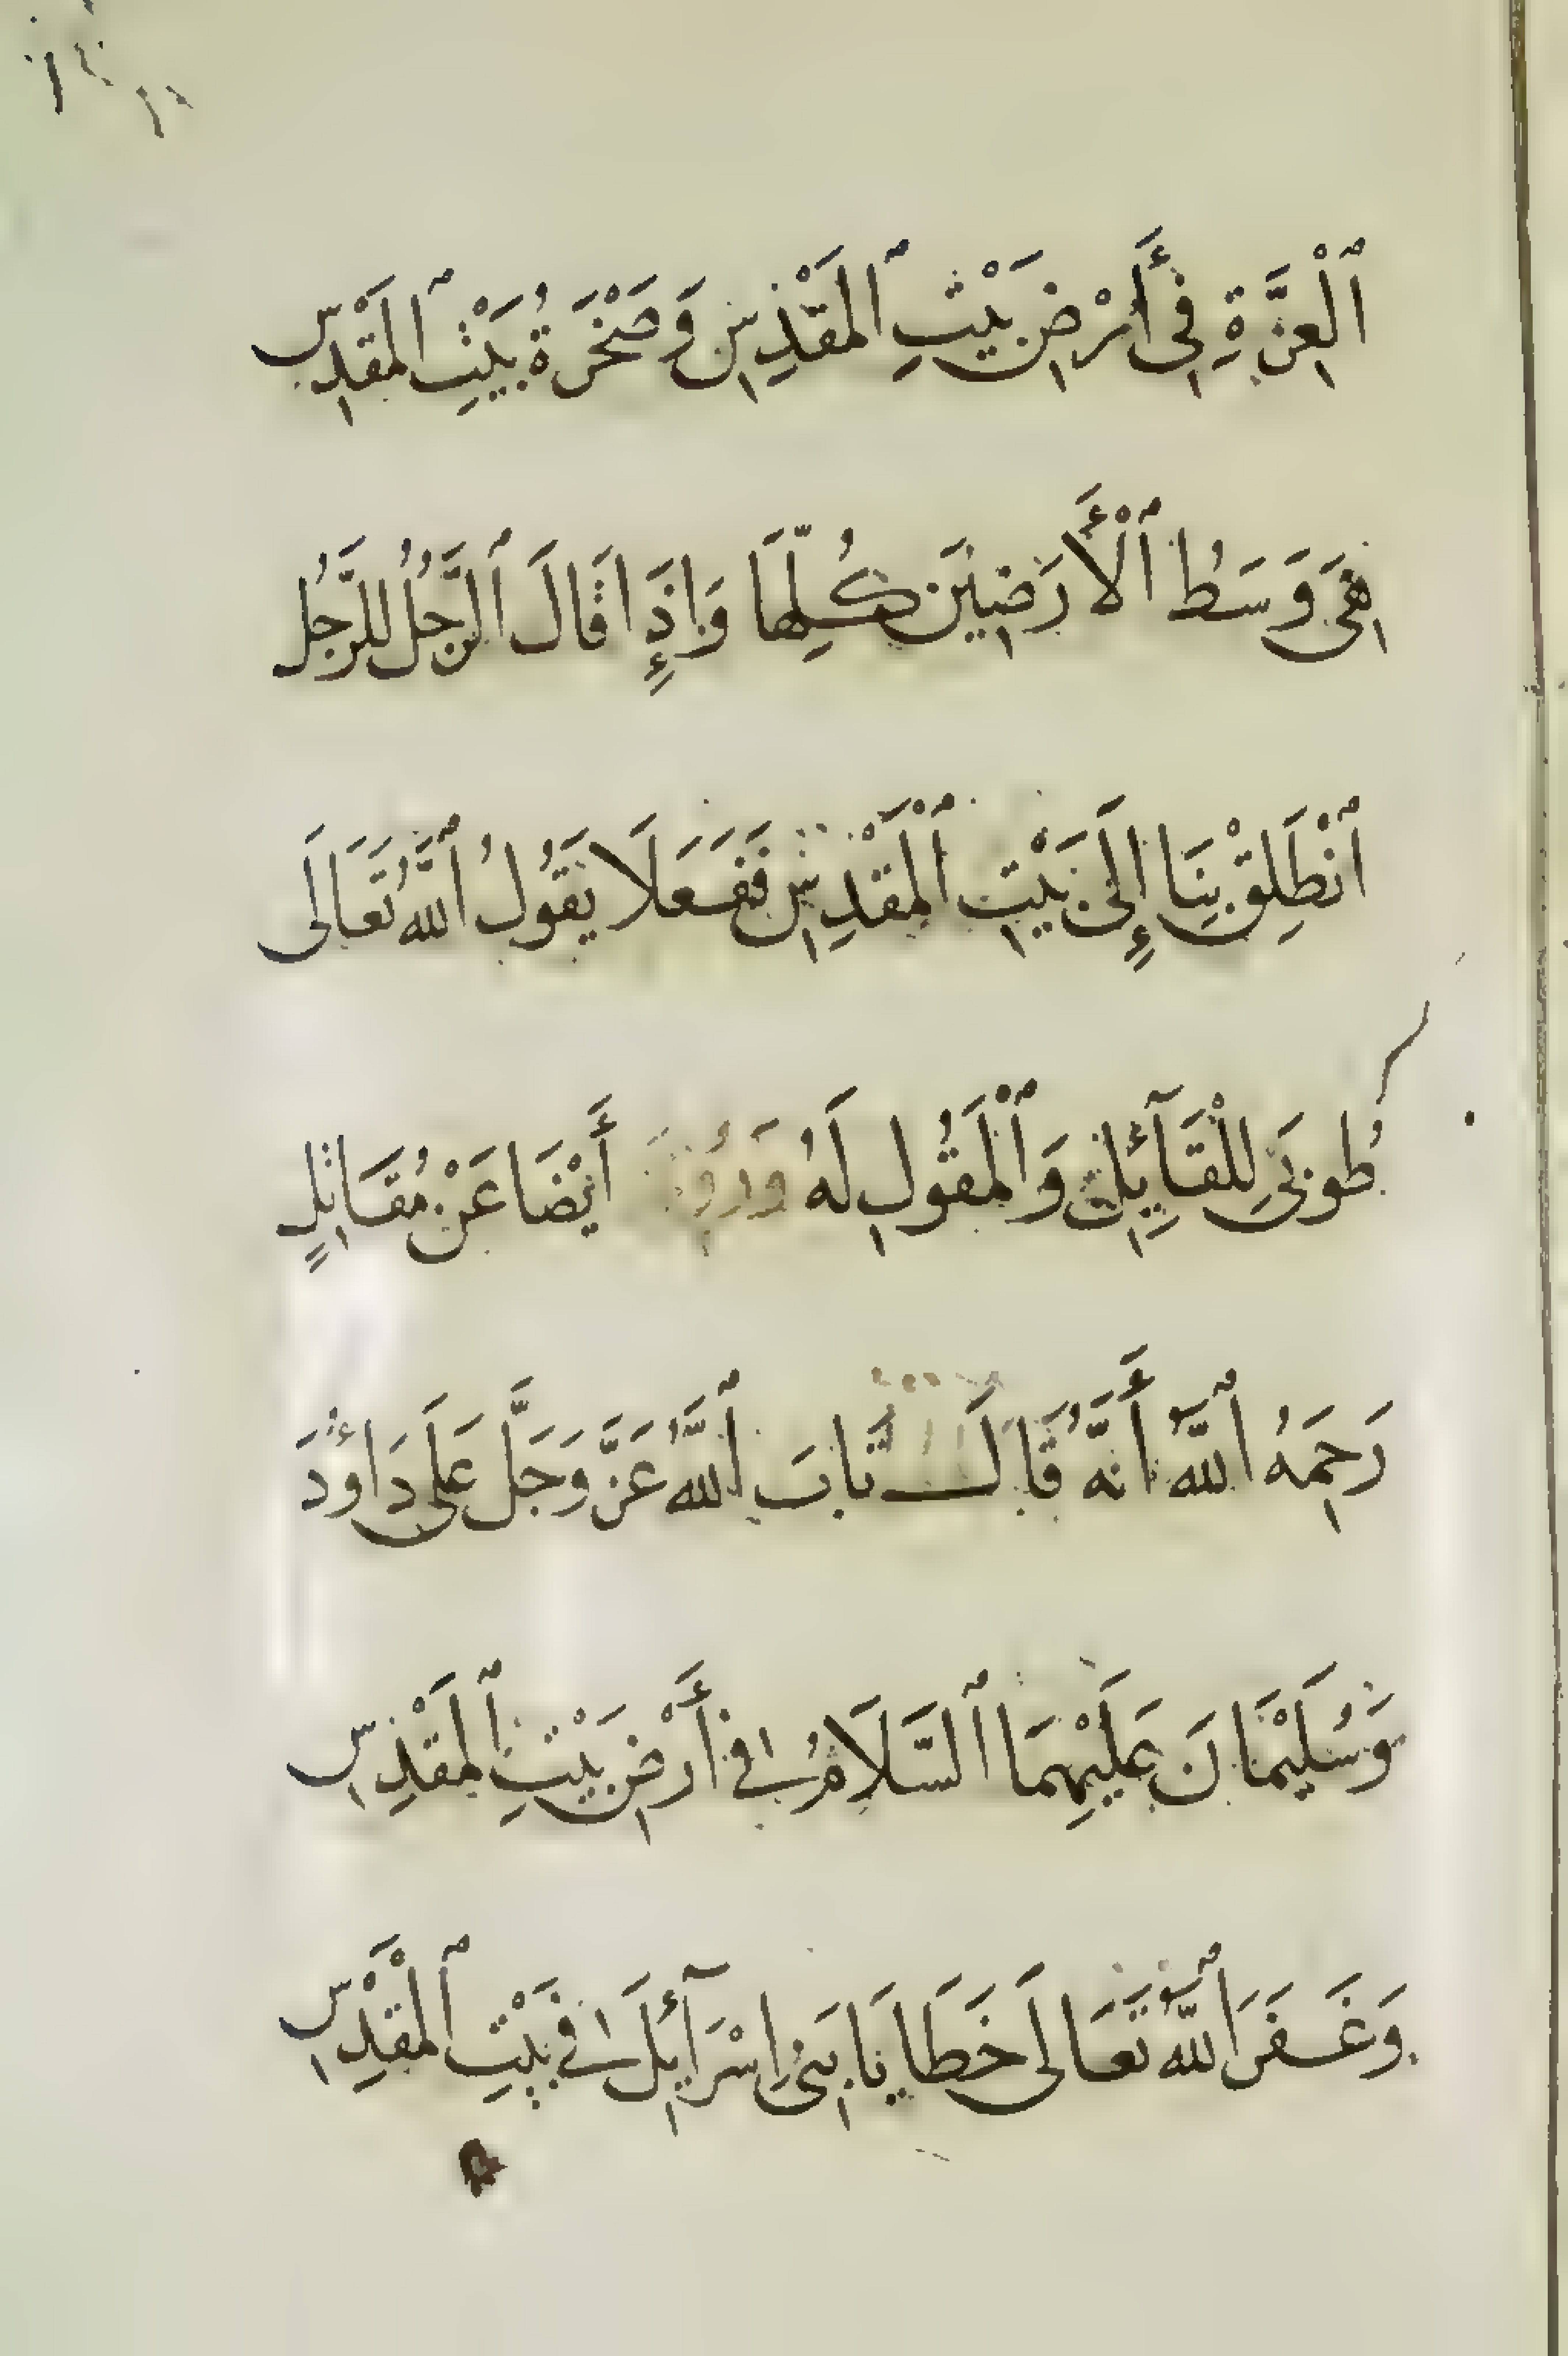 ٱلْعِزَّةِ فِى أَرْضِ بَيْتِ ٱلمَقْدِسِ وَصَخْرَةُ بَيْتِ ٱلمَقْدِسِ
هِىَ وَسَطُ ٱلْأَرَضِيْنَ كُلِّهَا وَإِذَا قَالَ ٱلرَّجُلُ لِلرَّجُلِ
ٱنْطَلِقْ بِنَا إِلَى بَيْتِ ٱلْمَقْدِسِ فَفَعَلَا يَقُولُ ٱللَّهُ تَعَالَى
طُوبَى لِلْقَآئِلِ وَٱلْمَقُولِ لَهُ وَرُوِىَ أَيْضَا عَنْ مُقَاتِلٍ
رَحِمَهُ ٱللَّهُ أَنَّهُ قَالَ تَابَ ٱللَّهُ عَزَّ وَجَلَّ عَلَى دَاوُدَ
وَسُلَيْمَانَ عَلَيْهِمَا ٱلسَّلَامُ فِى أَرْضِ بَيْتِ ٱلمَقْدِسِ
وَغَفَرَ ٱللَّهُ تَعَالَى خَطَايَا بَنِى إِسْرَآئِلَ فِى بَيْتِ ٱلمَقْدِسِ